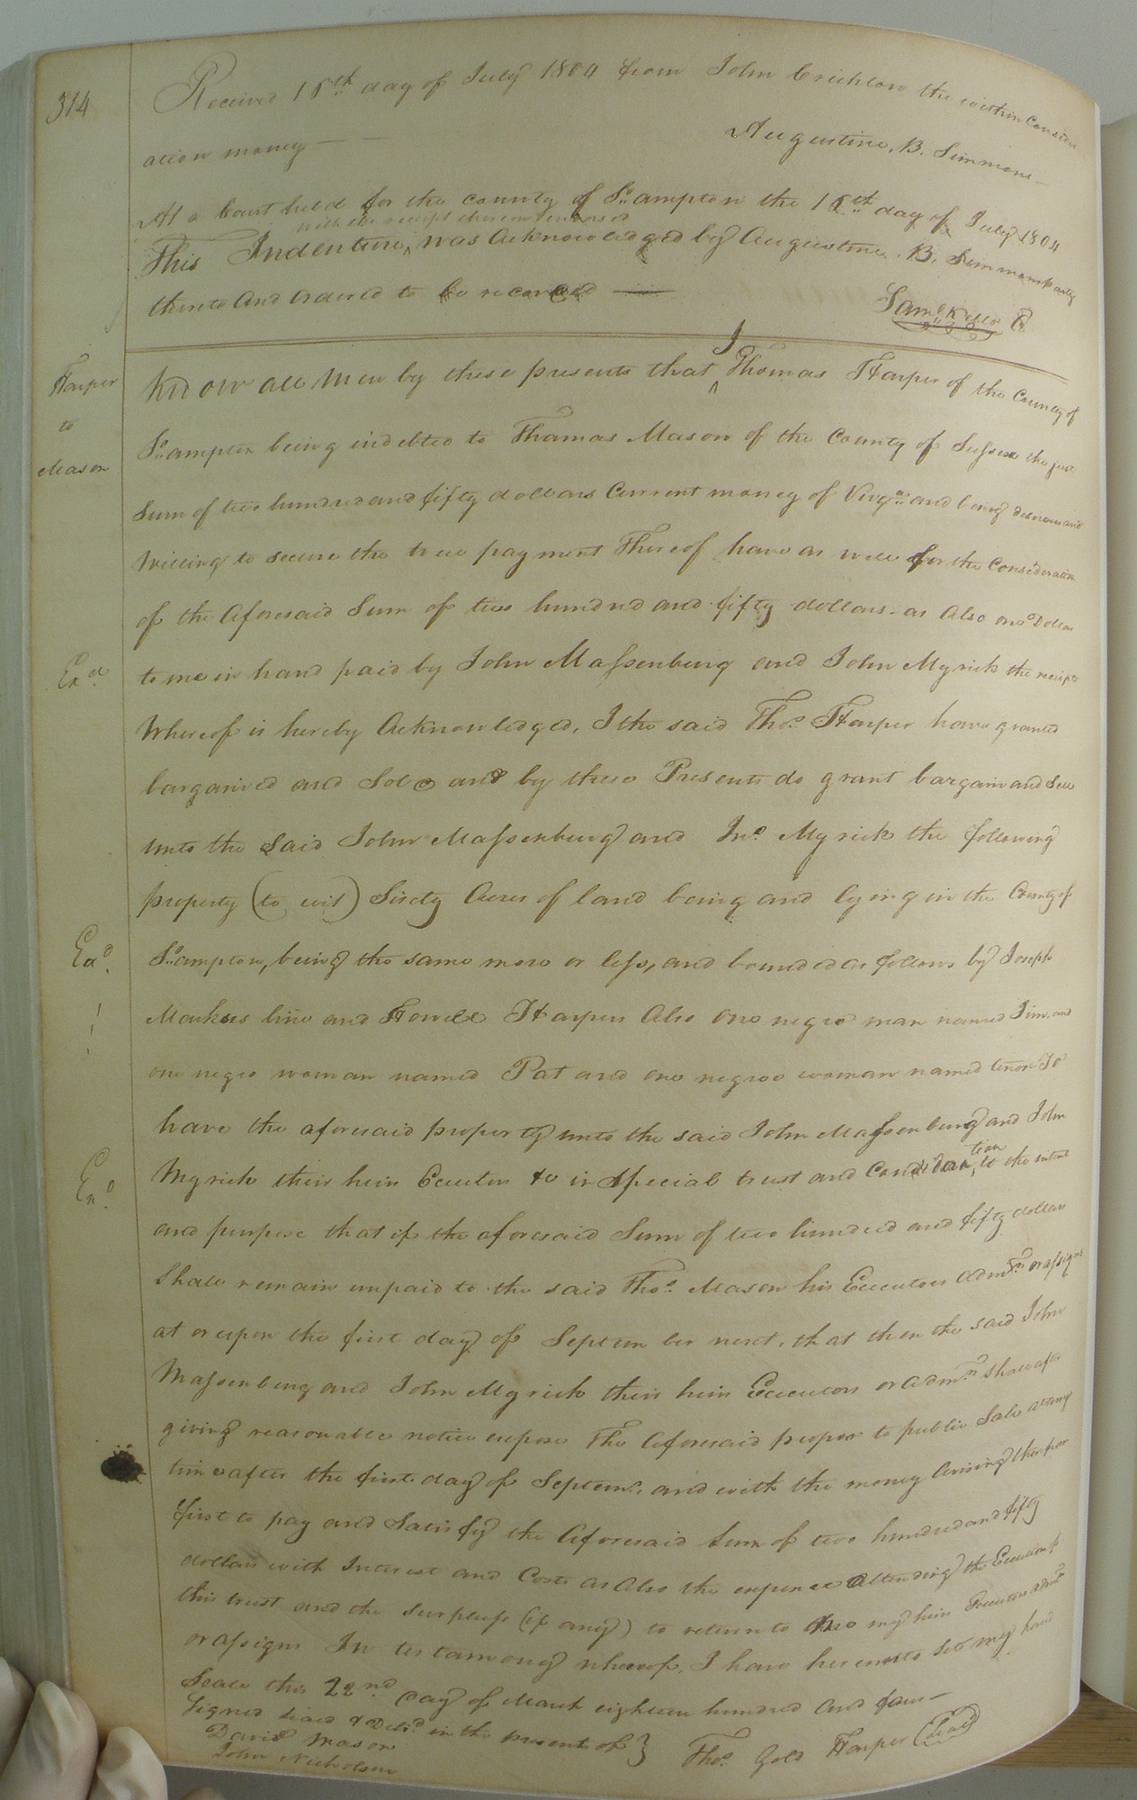 314
Received 18th day of July 1804 from John Crichlow the within Consider
ation money —
Augustine, B. Simmons
At a Court held for the county of So.ampton the 18th day of July 1804
with the receipt thereon endorsed
This Indenture, was Acknowledged by Augustine. B. Simmons party
thereto and ordered to be recorded —
Saml Kello C
Harper
to
Mason
Know all Men by these presents that I Thomas Harper of the County of
So.ampton being indebted to Thomas Mason of the County of Sussex the just
Sum of two hundred and fifty dollars Current money of Virga. and being desirous and
Willing to secure the true payment Thereof have as well for the Consideration
of the Aforesaid Sum of two hundred and fifty dollars - as Also one Dollar
to me in hand paid by John Massenburg and John Myrick the receipt
Whereof is hereby Acknowledged, I the said Thos. Harper have granted
bargained and Sold and by these Presents do grant bargain and Sell
unto the Said John Massenburg and Jno. Myrick the following
property (to wit) Sixty Acres of land being and lying in the County of
Exd.
So.ampton, being the same more or less, and bounded as follows by Joseph
line and Howell Harpers Also one negro man named Jim and
one negro woman named Pat and one negroe woman named To
have the aforesaid property unto the said John Massenburg and John
Myrick their heirs Exceutors &c in Special trust and Condidantion, to the intent
and purpose that if the aforesaid Sum of two hundred and fifty dollars
Shall remain unpaid to the said Thos. Mason his Executors Admrs. or assigns
at or upon the first day of September next, that then the said John
Massenburg and John Myrick their heirs Executors or Admrs. Shall after
giving reasonable notice expose The Aforesaid proper to public Sale at any
time after the first day of Septemr. and with the money Arising therefrom
first to pay and Satisfy the Aforesaid Sum of two hundred and fifty
dollars with Interest and Costs as Also the expence attending the Execution of
this trust and the surpluss (if any) to return to me my heirs Executors Admrs.
or assigns In testamony whereof, I have hereunto set my hand
Seale this 22nd. Day of March eighteen hundred and four —
Signed Seald & Delivd. in the presents of }
Thos. Gold Harper (Seal)
David Mason
John Nicholson